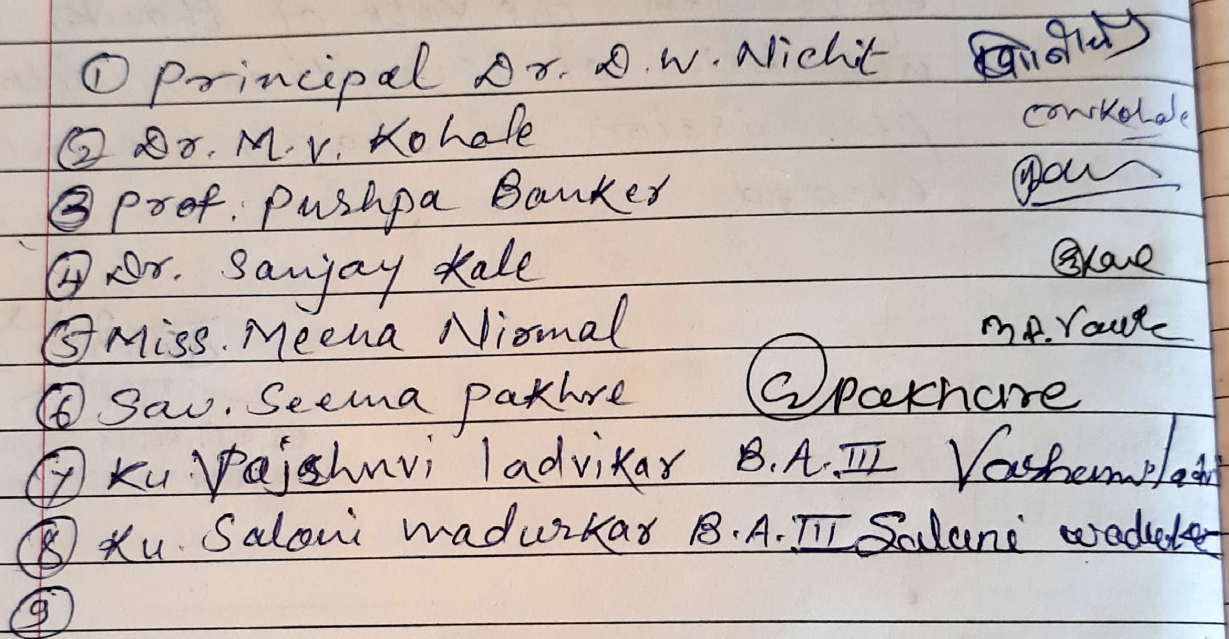 ① Principal Dr. D. W. Nichit
② Dr. M. V. Kohale Kohale
③ Prof. Pushpa Banker
④ Dr. Sanjay Kale
⑤ Miss. Meena Nirmal
⑥ Sau. Seema Pakhre Pakhare
⑦ Ku. ladvikar B.A. III
⑧ Ku. Saloni wadurkar B.A. III Saloni
⑨